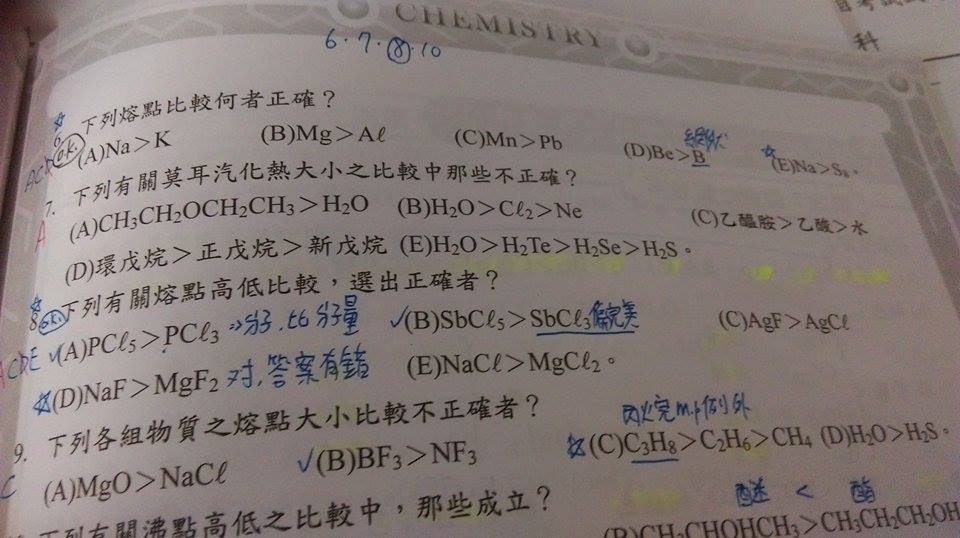 CHEMISTRY
科
6.7.⑧.10
下列熔點比較何者正確？
(A)Na＞K (B)Mg＞Aℓ (C)Mn＞Pb (D)Be＞B (E)Na＞S₈。
7. 下列有關莫耳汽化熱大小之比較中那些不正確？
A (A)CH₃CH₂OCH₂CH₃＞H₂O (B)H₂O＞Cℓ₂＞Ne (C)乙醯胺＞乙酸＞水
(D)環戊烷＞正戊烷＞新戊烷 (E)H₂O＞H₂Te＞H₂Se＞H₂S。
8. 下列有關熔點高低比較，選出正確者？
ACDE ✓(A)PCℓ₅＞PCℓ₃ ⇒分子，比分子量 ✓(B)SbCℓ₅＞SbCℓ₃ (C)AgF＞AgCℓ
☆(D)NaF＞MgF₂ 对，答案有錯 (E)NaCℓ＞MgCℓ₂。
9. 下列各組物質之熔點大小比較不正確者？
丙烷m.p例外
C (A)MgO＞NaCℓ ✓(B)BF₃＞NF₃ ☆(C)C₃H₈＞C₂H₆＞CH₄ (D)H₂O＞H₂S。
下列有關沸點高低之比較中，那些成立？
醚 < 酯
(B)CH₃CHOHCH₃＞CH₃CH₂CH₂OH